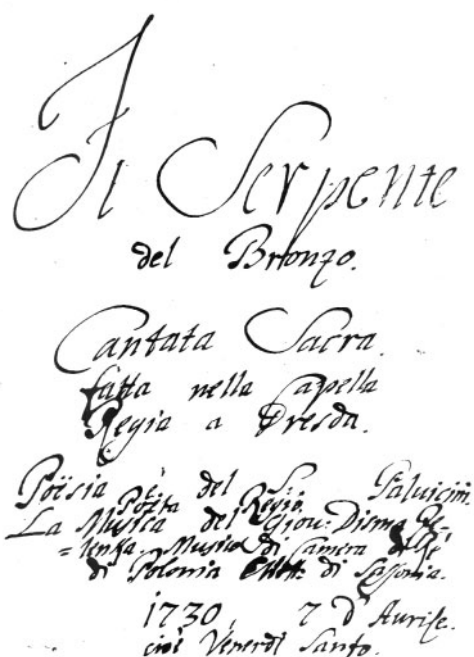 Il Serpente
del Bronzo.
Cantata Sacra
fatta nella Capella
Regia a Dresda.
Poësia è del S. Paluicini
Poëta Regio.
La Musica del Giov: Disma Ze-
=lenka. Musico di Camera
di Polonia Elett: di Sassonia.
1730, 7 d'Aurile.
cioè Venerdi Santo.